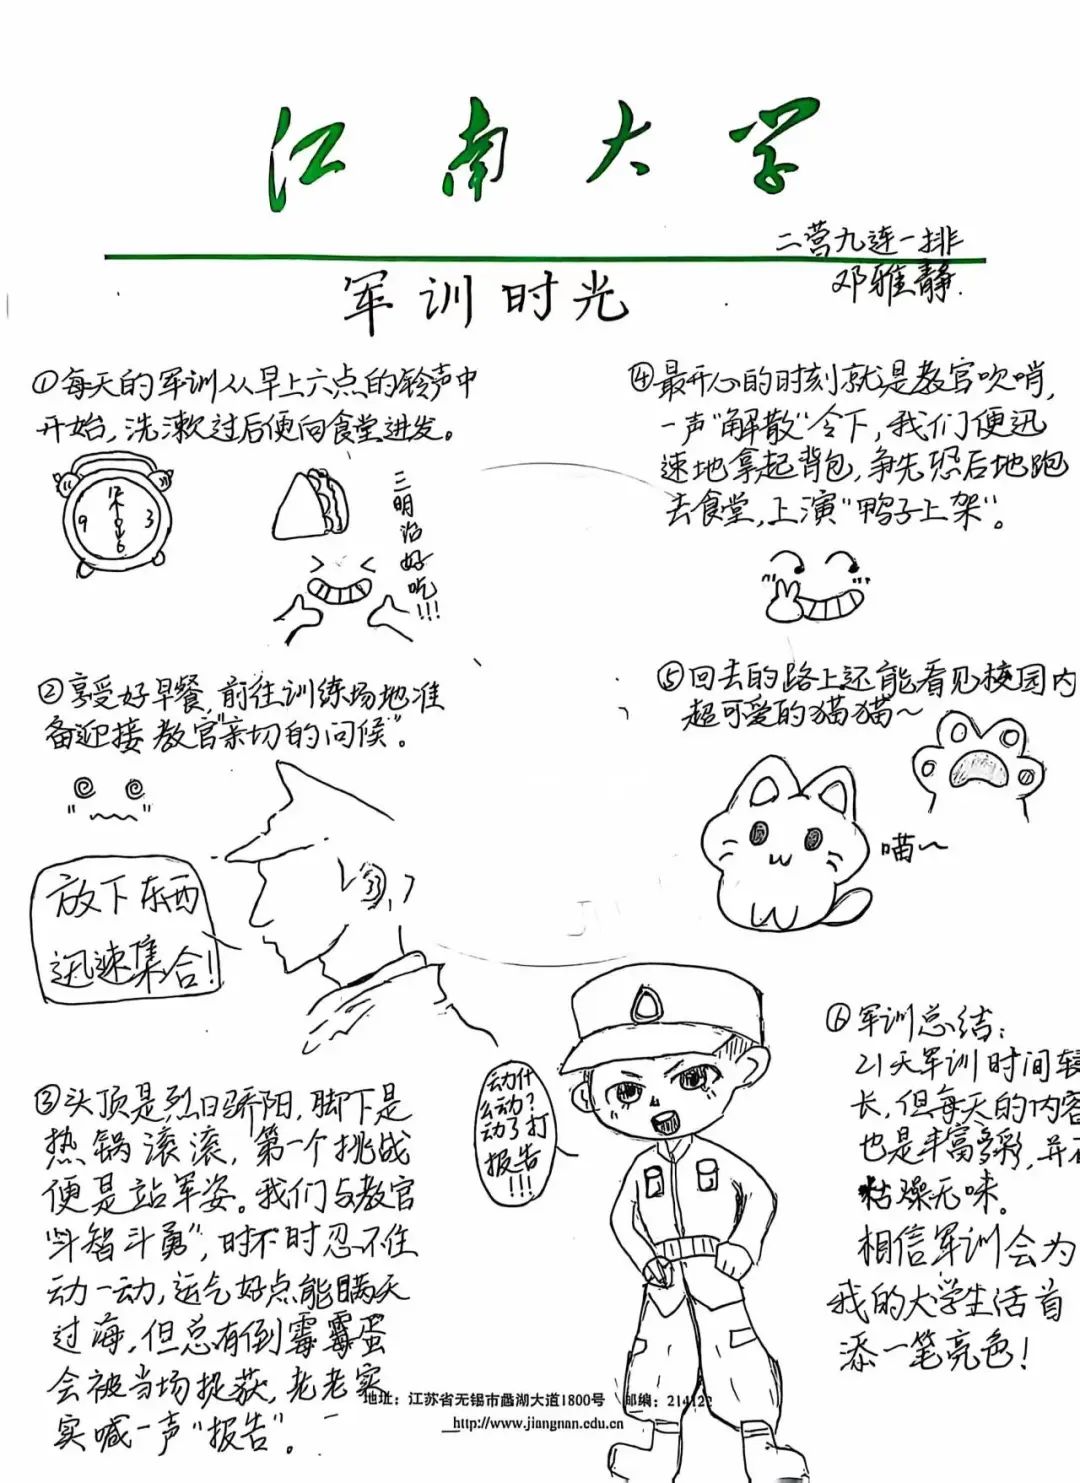 江南大学
二营九连一排
邓雅静.
军训时光
①每天的军训从早上六点的铃声中
开始,洗漱过后便向食堂进发。
9 3
6
三明治好吃!!!
②享受好早餐,前往训练场地准
备迎接教官"亲切的问候"。
放下东西
迅速集合!
③头顶是烈日骄阳,脚下是
热锅滚滚,第一个挑战
便是站军姿。我们与教官
"斗智斗勇",时不时忍不住
动一动,运气好点能瞒天
过海,但总有倒霉霉蛋
会被当场捉获,老老实
实喊一声"报告"。
④最开心的时刻就是教官吹哨,
一声"解散"令下,我们便迅
速地拿起背包,争先恐后地跑
去食堂,上演"鸭子上架"。
⑤回去的路上还能看见校园内
超可爱的猫猫~
喵~
动什
么动?
动了打
报告
!!!
⑥军训总结:
21天军训时间较
长,但每天的内容
也是丰富多彩,并不
枯燥无味。
相信军训会为
我的大学生活首
添一笔亮色!
地址:江苏省无锡市蠡湖大道1800号 邮编:214122
http://www.jiangnan.edu.cn